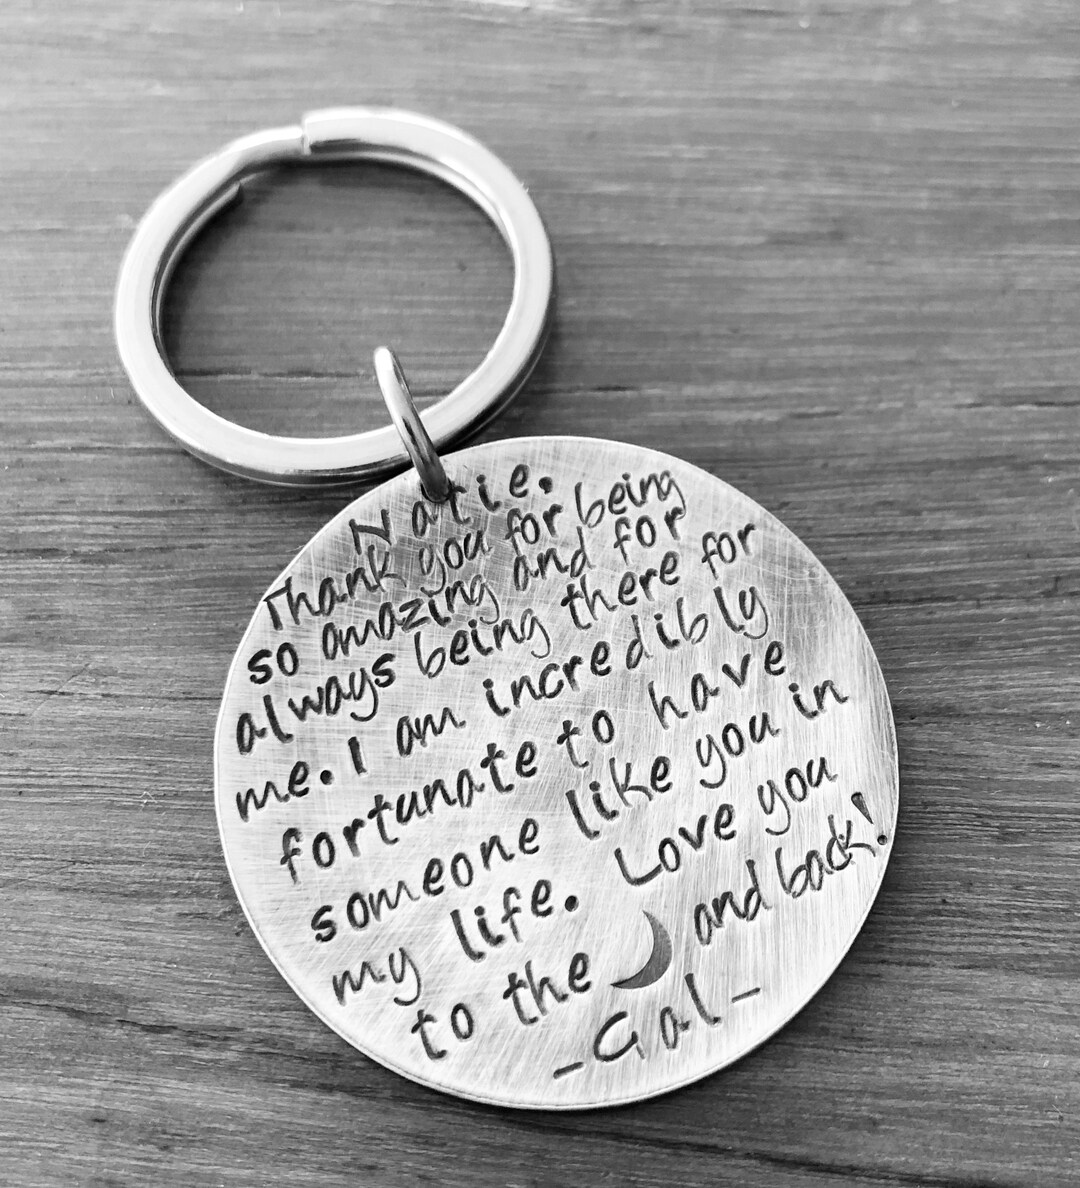 Natie,
Thank you for being
so amazing and for
always being there for
me. I am incredibly
fortunate to have
someone like you in
my life. Love you
to the 🌙 and back!
-Gal-